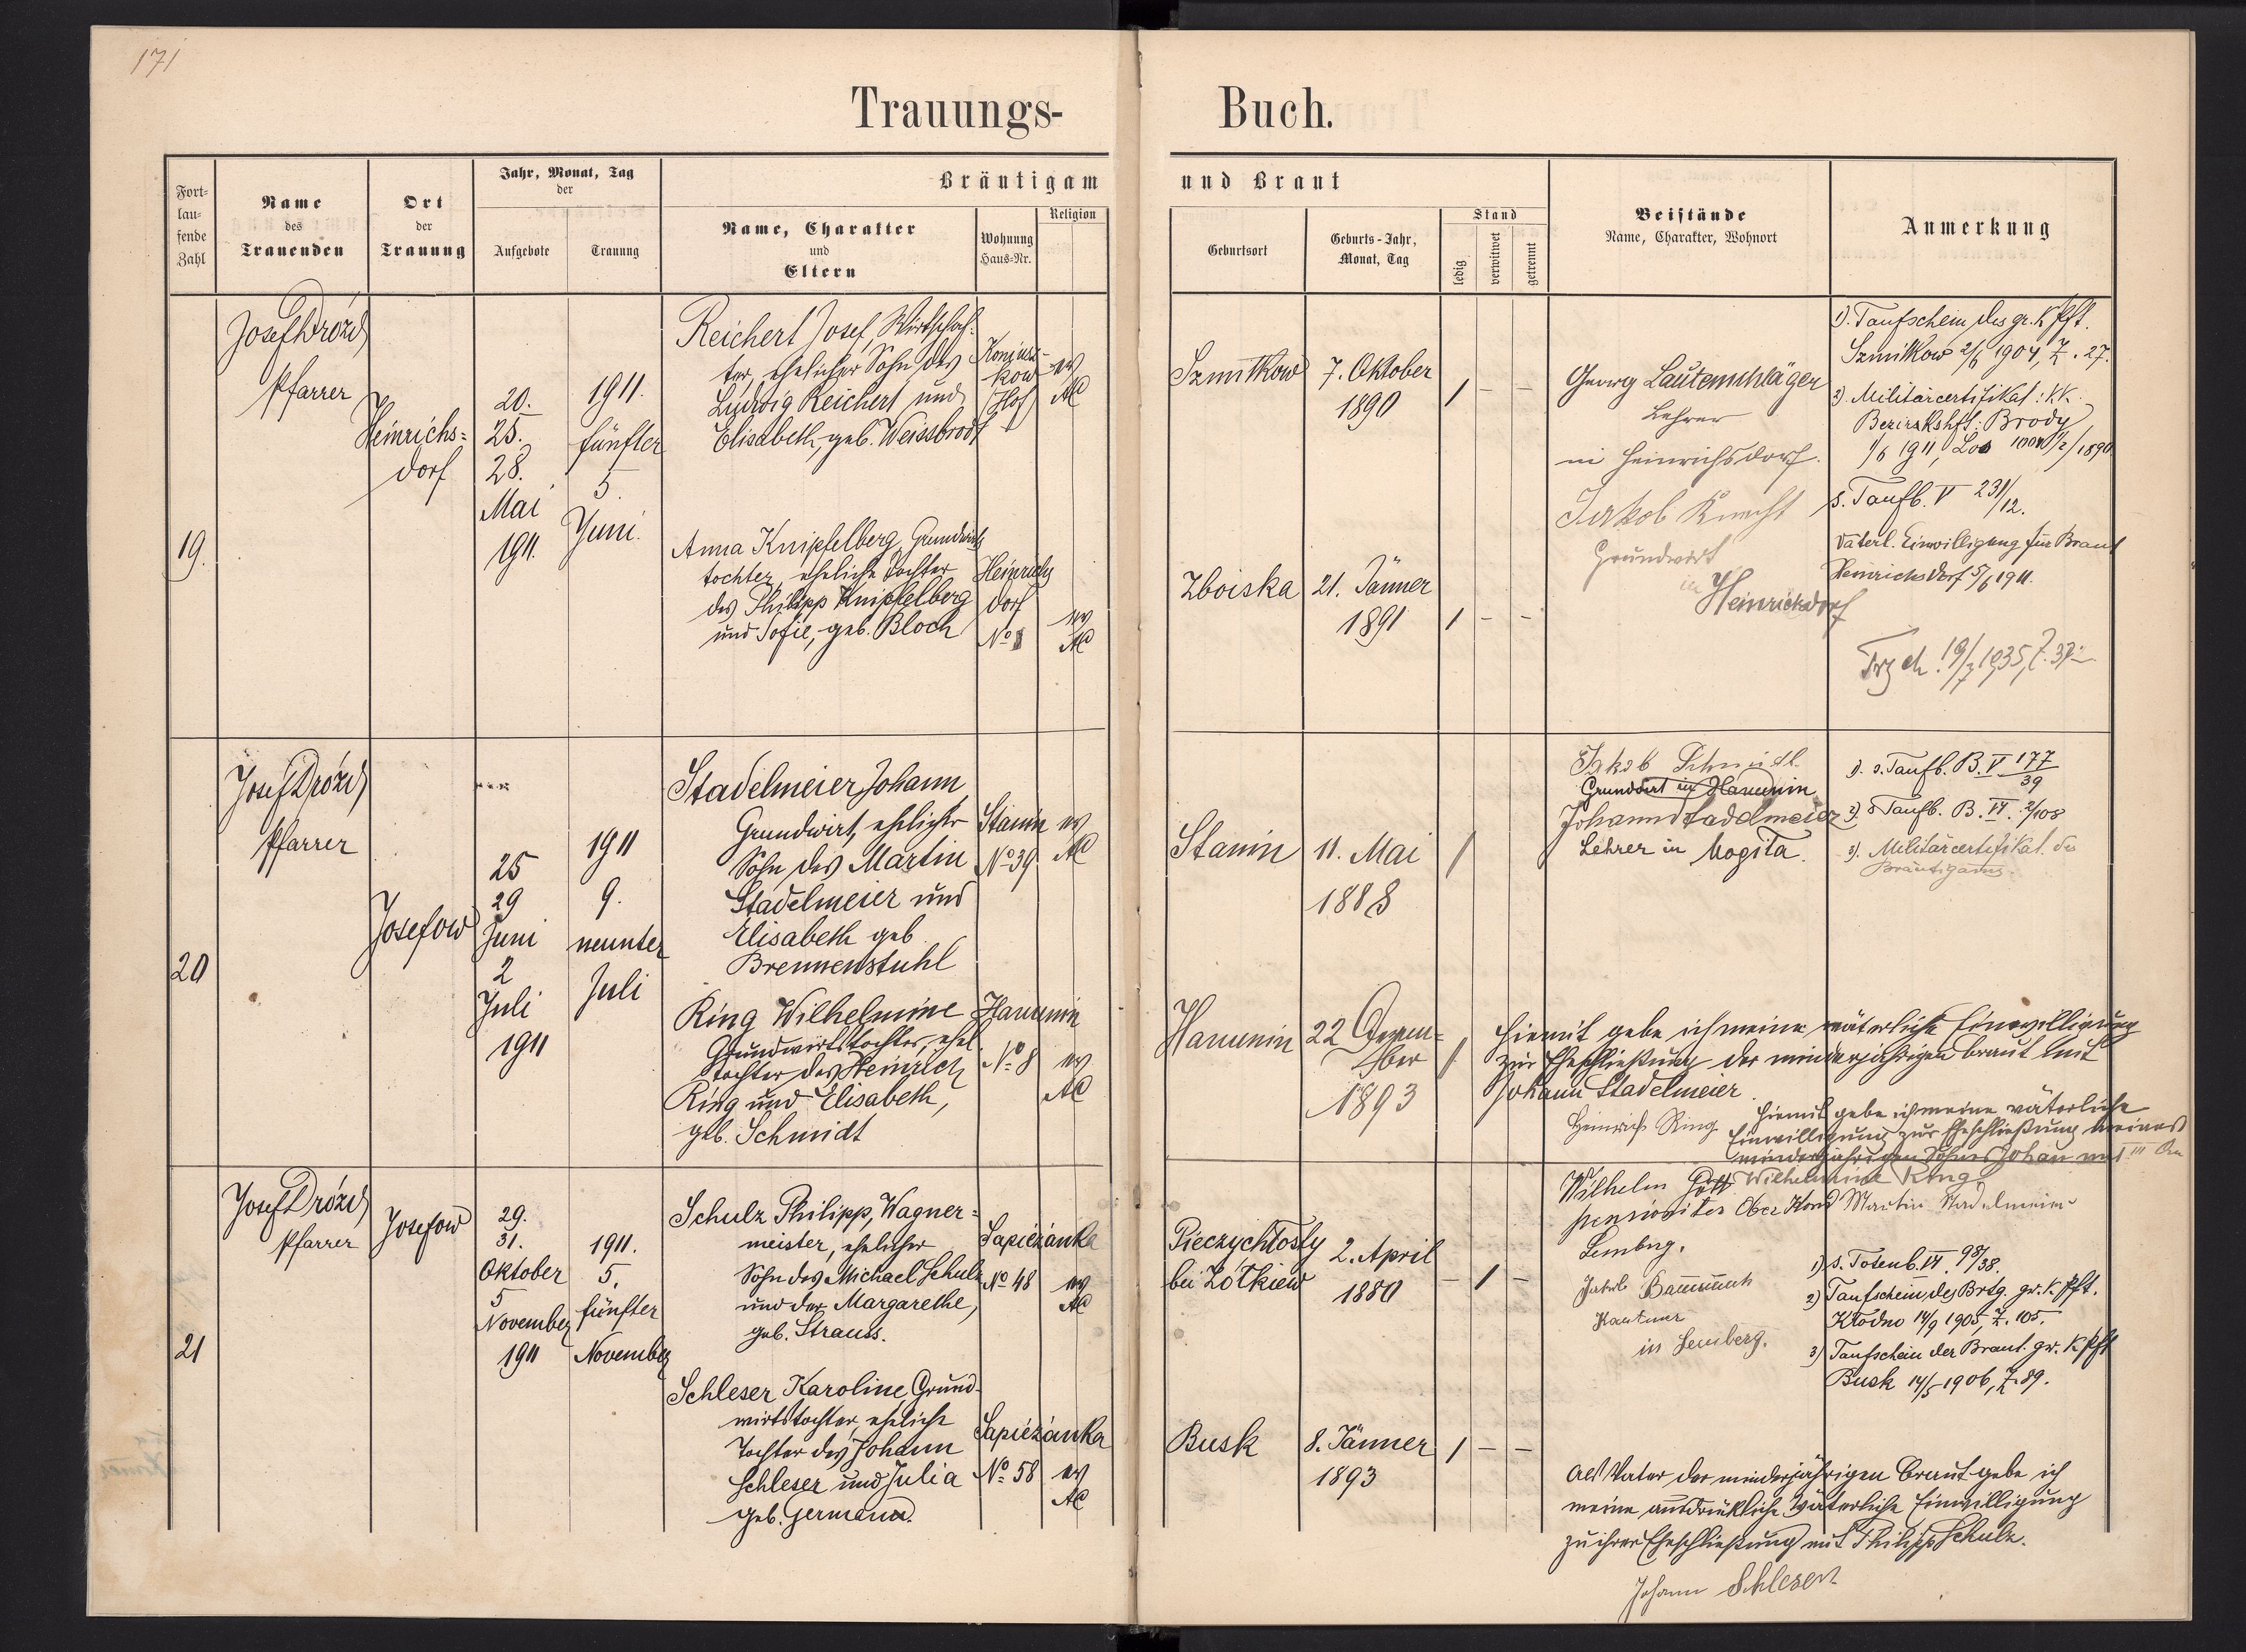 171
Trauungs- Buch.
Fort-
lau-
fende
Zahl
Name
des
Trauenden
Ort
der
Trauung
Jahr, Monat, Tag
der
Aufgebote
Trauung
Bräutigam und Braut
Name, Charakter
und
Eltern
Wohnung
Haus-Nr.
Religion
Geburtsort
Geburts-Jahr,
Monat, Tag
Stand
ledig
verwitwet
getrennt
Beistände
Name, Charakter, Wohnort
Anmerkung
19.
Josef Drozd
Pfarrer
Heinrichs=
dorf
20.
25.
28.
Mai
1911.
1911.
fünfter
5.
Juni.
Reichert Josef, Wirtschaf-
ter, ehelicher Sohn des
Ludwig Reichert und
Elisabeth, geb. Weissbrodt
kow
Hof
ev
AC
Szmitkow
7. Oktober
1890
1 - -
Anna Knipfelberg, Grundwirts
tochter, eheliche Tochter
des Philipp Knipfelberg
und Sofie, geb. Bloch
Heinrichs
dorf
No
ev
AC
Zboiska
21. Jänner
1891
1 - -
Georg Lautenschläger
Lehrer
in Heinrichsdorf.
Jakob Knecht
Grundwirt
in
Heinrichsdorf
1). Taufschein des gr. K Pft.
Szmitkow 2/6 1904, Z. 27.
2) Militärcertifikat: KK.
Bezirkshft: Brody
1/6 1911,
s. Taufb. V 231/12.
Väterl. Einwilligung für Braut
Heinrichsdorf 5/6 1911.
19/7 1935, Z. 37
20
Josef Drozd
Pfarrer
Josefow
25
29
Juni
2
Juli
1911
1911
9.
neunter
Juli
Stadelmeier Johann
Grundwirt, ehelicher
Sohn des Martin
Stadelmeier und
Elisabeth geb.
Brennenstuhl
Stanin
No 39
ev
AC
Stanin
11. Mai
1888
1
Ring Wilhelmine
Grundwirtstochter, ehel.
Tochter des Heinrich
Ring und Elisabeth,
geb. Schmidt
Hanunin
No 8
ev
AC
Hanunin
22 Dezem-
ber
1893
1
Jakob Schmidt
Grundwirt in Hanunin
Johann Stadelmeier
Lehrer in Mogiła.
1). s. Taufb. B. V 177/39
2). s Taufb. B. VI. 2/108
3). Militärcertifikat des
Bräutigams.
Hiemit gebe ich meine väterliche Einwilligung
zur Eheschließung der minderjährigen Braut mit
Johann Stadelmeier.
Heinrich Ring
Hiemit gebe ich meine väterliche
Einwilligung zur Eheschließung meines
minderjährigen Sohnes Johann mit
Wilhelmine Ring
Martin Stadelmeier
21
Josef Drozd
Pfarrer
Josefow
29.
31.
Oktober
5
November
1911
1911.
5.
fünfter
November
Schulz Philipp, Wagner=
meister, ehelicher
Sohn des Michael Schulz
und der Margarethe,
geb. Strauss.
Sapiezanka
No 48
ev
AC
Pieczychłosty
bei Żołkiew
2. April
1880
- 1 -
Schleser Karoline, Grund-
wirtstochter, eheliche
Tochter des Johann
Schleser und Julia
geb. Germann.
Sapiezanka
No 58
ev
AC
Busk
8. Jänner
1893
1 - -
Wilhelm
Lembrg.
in Lemberg.
1) s. Totenb. VI. 98/38.
2) Taufschein des Brtg. gr. K. Pft.
Kłodno 14/9 1905, Z. 105.
3) Taufschein der Braut. gr. K Pft
Busk 14/5 1906, Z. 89.
Als Vater der minderjährigen Braut gebe ich
meine ausdrückliche väterliche Einwilligung
zu ihrer Eheschließung mit Philipp Schulz.
Johann Schleser